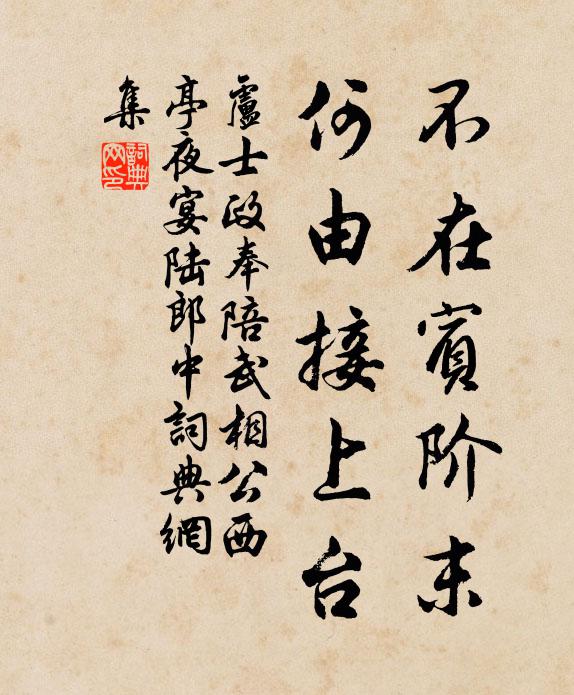 不在賓阶末
何由接上台
盧士政奉陪武相公西
亭夜宴陆郎中詞典網
集
詞典
网印